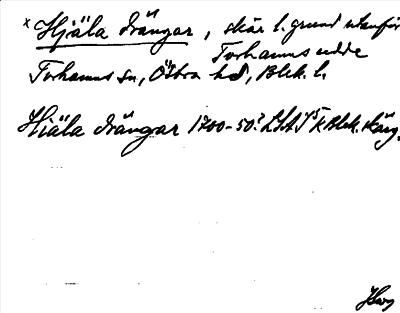 x Hjäla drängar, skär l. grund utanför
Torhamns udde
Torhamns sn, Östra hd, Blek. l.
Hiäla drängar 1700-50? LSA J5 K Blek. skärg.